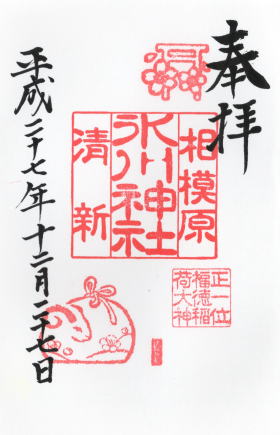 奉拝
相模原
氷川神社
清新
正一位
福徳稲
荷大神
平成二十七年十二月二十七日